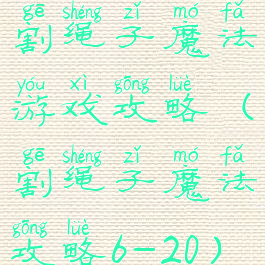 gē shéng zǐ mó fǎ
割绳子魔法
yóu xì gōng lüè
游戏攻略（
gē shéng zǐ mó fǎ
割绳子魔法
gōng lüè
攻略6-20）